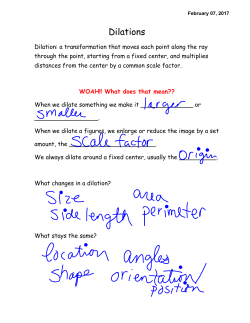 February 07, 2017
Dilations
Dilation: a transformation that moves each point along the ray
through the point, starting from a fixed center, and multiplies
distances from the center by a common scale factor.
WOAH!! What does that mean??
When we dilate something we make it larger or
smaller.
When we dilate a figures, we enlarge or reduce the image by a set
amount, the scale factor.
We always dilate around a fixed center, usually the origin
What changes in a dilation?
Size area
Side length perimeter
What stays the same?
location angles
shape orientation
position